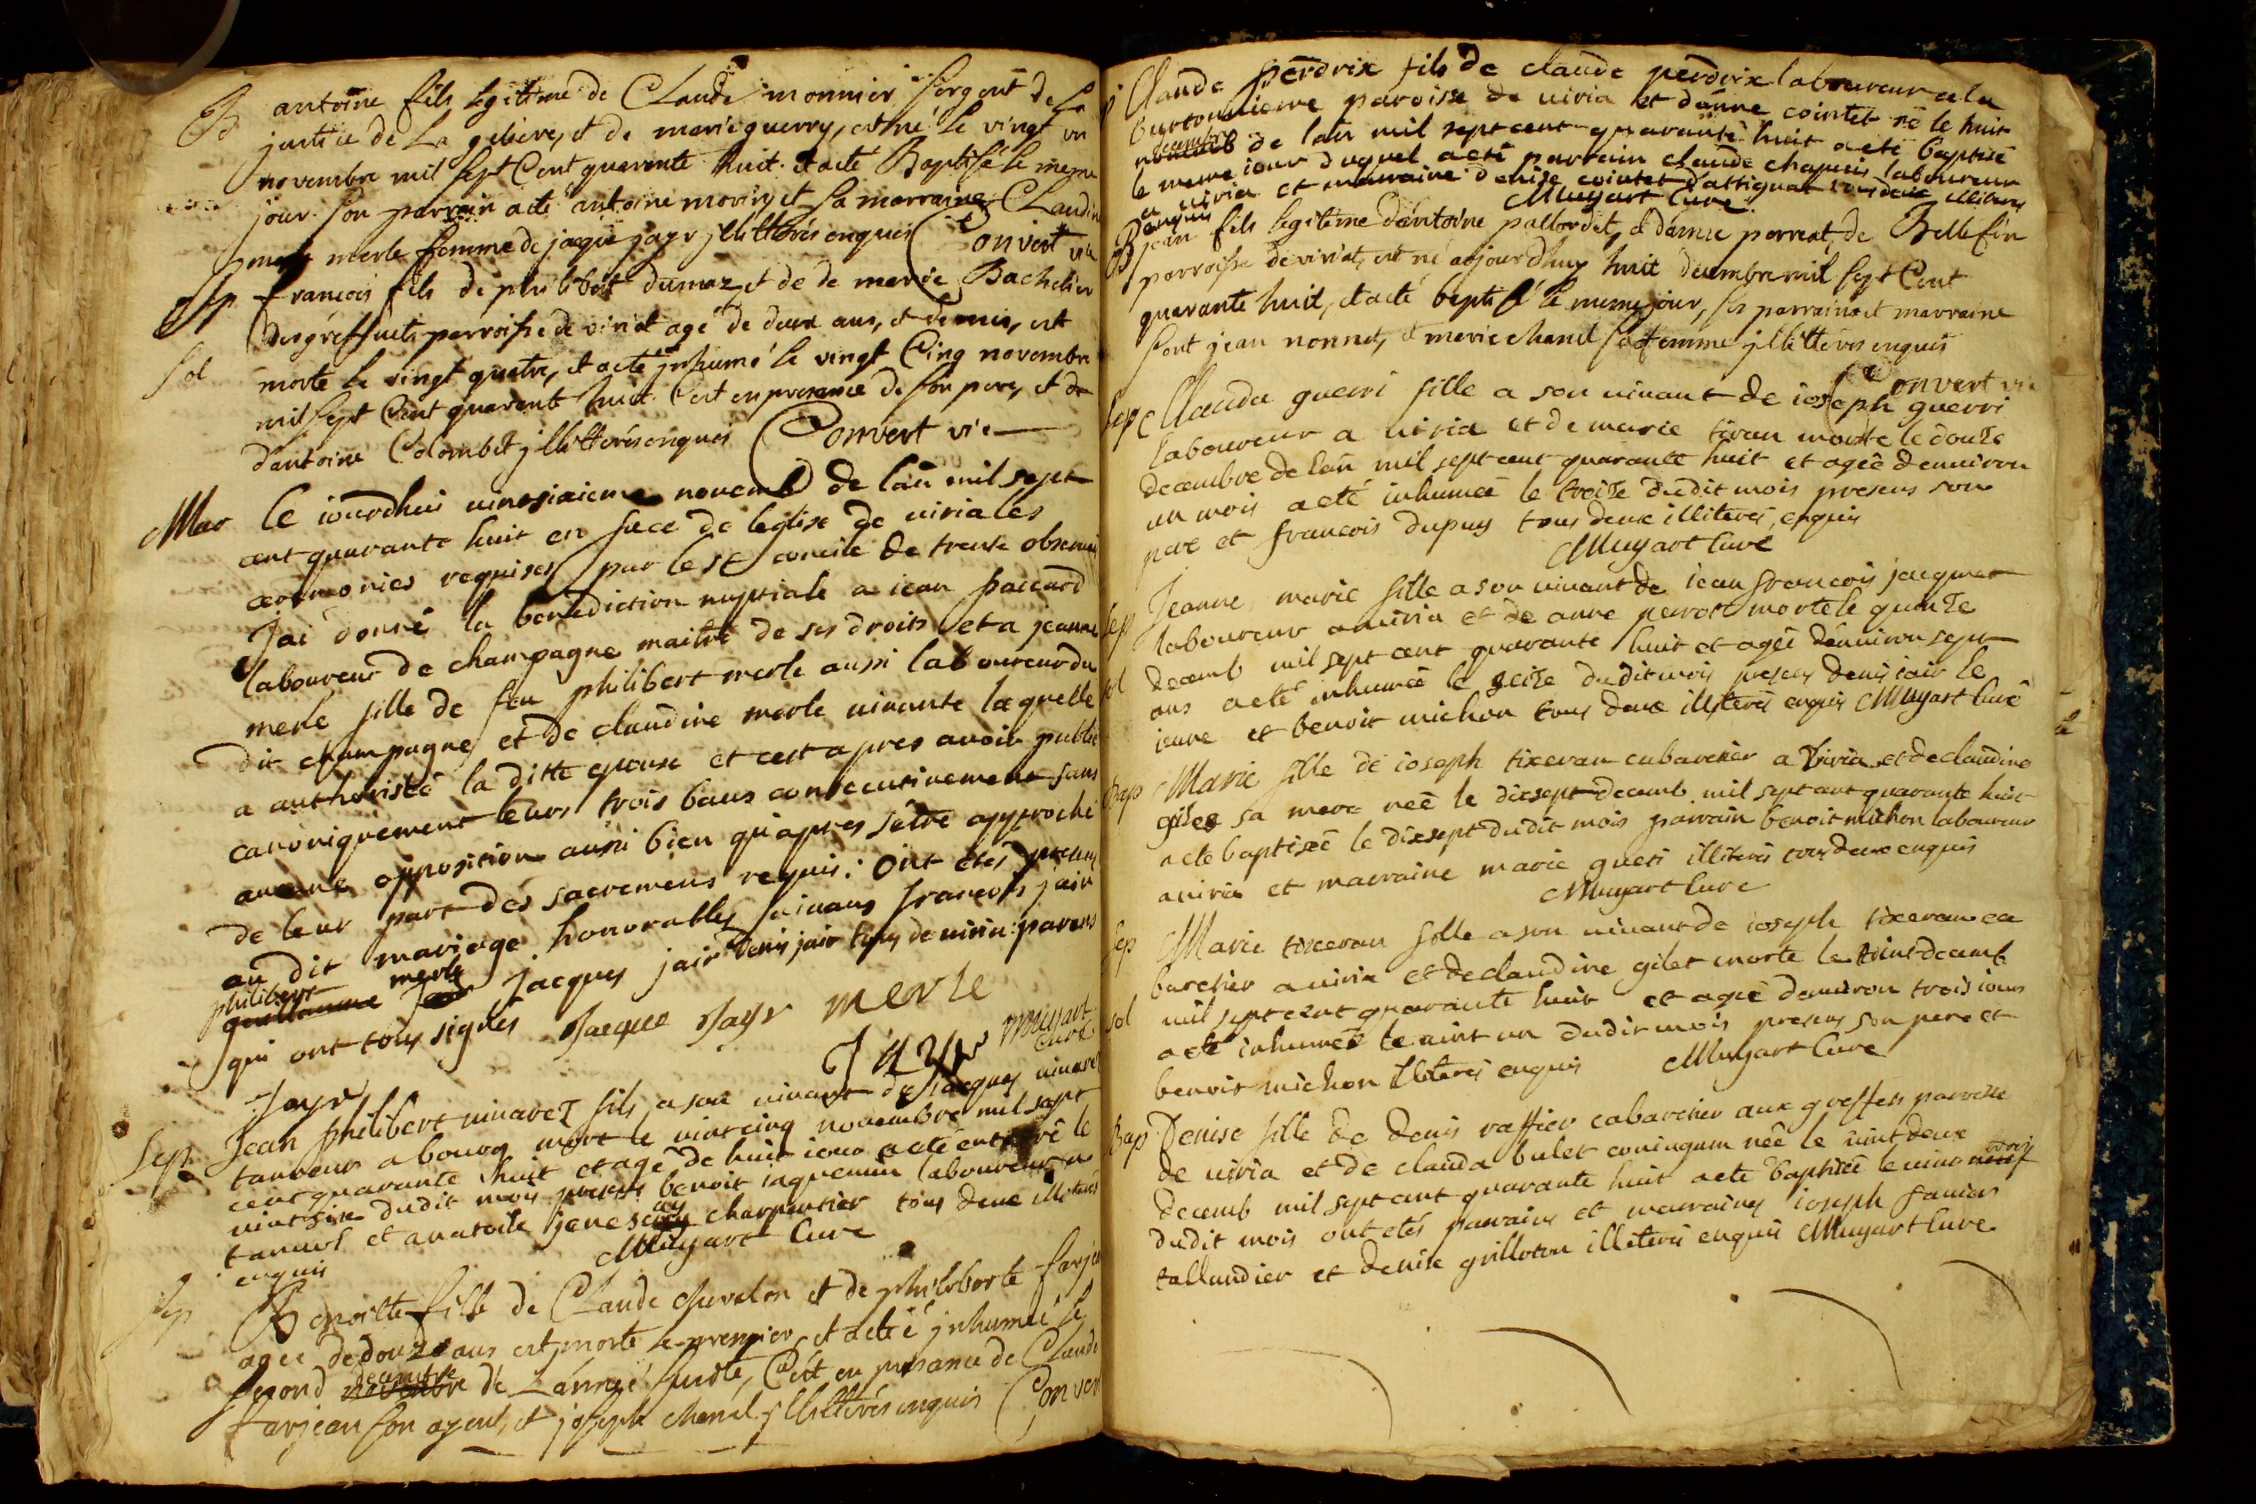 B antoine fils legitime de Claude monnier sergent de la
justice de La geliere, et de marie guerry, est né le vingt un
novembre mil sept Cent quarente huit et acté Baptisé le mesme
jour son parrain acté antoine morin, et sa marraine Claudine
merle femme de jacque jayr jllitterés enquis Convert vic
Sep francois fils de philibert dumaz et de marie Bachelier
des greffiets parroisse de viriat agé de deux ans, et demis, est
sol morte le vingt quatre, et acté jnhumé le vingt Cinq novembre
mil sept Cent quarente huit C'est en presence de son pere, et de
d'antoine Colombet jllitterés enquis Convert vic
Mar le iourdhui vinssixieme novemb de lan mil sept
cent quarante huit en face de leglise de viria les
ceremonies requises par le St concile de trente observées
Jai donné la benediction nuptiale a iean paccard
laboureur de champagne maitre de ses droits et a jeanne
merle fille de feu philibert merle aussi laboureur du
dit champagne et de claudine merle vivante laquelle
a authorisée la ditte epouse et cest apres avoir publié
canoniquement leurs trois bans consecutivement sans
aucune opposition aussi bien qu'apres sêtre approché
de leur part des sacremens requis: Ont étés presens
au dit mariage honorables suivans francois jair
philibert merle Jacques jair denis jair tous de viria parens
qui ont tous signés Jacque Jayr merle
Jayr Jayr Muyart Curé
Sep Jean philibert vivarez fils a son vivant de jacques vivarez
tanneur a bourg mort le vintcinq novembre mil sept
cent quarante huit et agé de huit iour acté enterré le
vintsix dudit mois presens benoit iaquemin laboureur a
tanvol et anatoile charpentier tous deux illiterés
enquis Muyart Curé
Sep Benoitte fille de Claude chevalon et de philiberte farjean
agee de douze ans est morte le premier, et acteé jnhumée le
second decembre de L'année susdte, C'est en presance de Claude
farjean son ayeul, et joseph chanel jllitterés enquis Convert
Claude perdrix fils de claude perdrix laboureur a la
burtonniere paroisse de viria et d'anne cointet né le huit
decembre de lan mil sept cent quarante huit acté baptisé
le meme iour duquel acté parrain claude chapuis laboureur
a viria et marraine denise cointet d'attignat tous deux illiteres
enquis Muyart Curé
B jean fils legitime d'antoine pallordet, et d'anne perreat, de Bellefin
parroisse de viriat, est né aujourdhuy huit decembre mil sept Cent
quarante huit, et acté baptisé le mesme jour, ses parrain et marraine
sont jean nonnet, et marie chanel sa femme jllitterés enquis
Convert vic
Sep Clauda guerri fille a son vivant de ioseph guerri
laboureur a viria et de marie tixeran morte le douze
decembre de lan mil sept cent quarante huit et agée denviron
un mois acté inhumeé le treize dudit mois presens son
pere et francois dupuy tous deux illiterés, enquis
Muyart Curé
Sep Jeanne marie fille a son vivant de iean francois jacquet
laboureur a viria et de anne perrat morte le quinze
sol decemb mil sept cent quarante huit et ageé denviron sept
ans acté inhumeé le seize dudit mois presens denis iair le
ieune et benoit michon tous deux illiterés enquis Muyart Curé
Bap Marie fille de ioseph tixeran cabaretier a viria et de claudine
gilet sa mere neé le dixsept decemb mil sept cent quarante huit
acté baptiseé le dixsept dudit mois parrain benoit michon laboureur
a viria et marraine marie gueri illiterés tous deux enquis
Muyart Curé
Sep Marie tixeran fille a son vivant de ioseph tixeran ca
baretier a viria et de claudine gilet morte le vint decemb
sol mil sept cent quarante huit et ageé denviron trois iours
acté inhumeé le vint un dudit mois presens son pere et
benoit michon illiterés enquis Muyart Curé
Bap Denise fille de denis raffier cabaretier aux greffets parroisse
de viria et de clauda bulet coniugum neé le vint deux
decemb mil sept cent quarante huit acté baptiseé le vint trois
dudit mois ont etés parrains et marraines ioseph favier
tallandier et denise grilloton illiterés enquis Muyart Curé